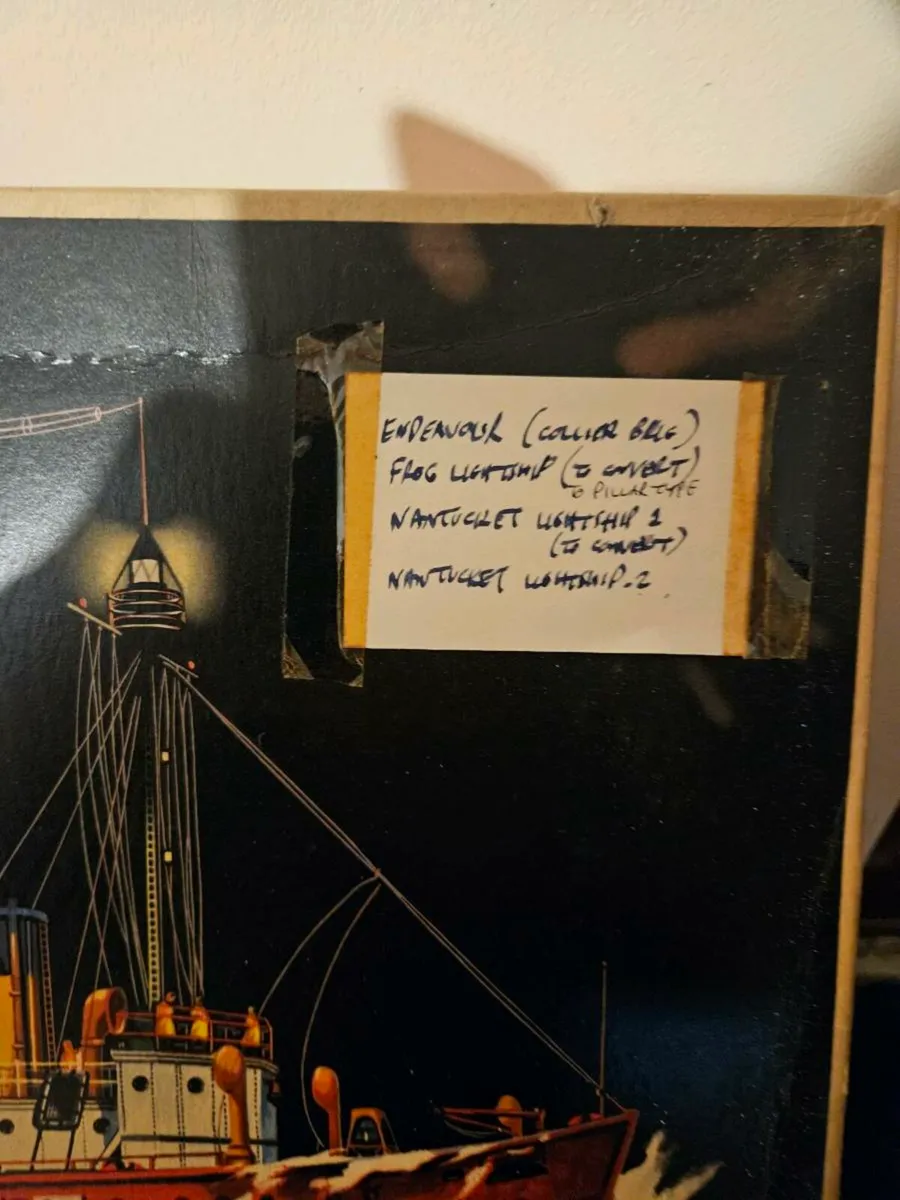 ENDEAVOUR (COLLIER BRIG)
FROG LIGHTSHIP (TO CONVERT)
TO PILLAR TYPE
NANTUCKET LIGHTSHIP 1
(TO CONVERT)
NANTUCKET LIGHTSHIP-2